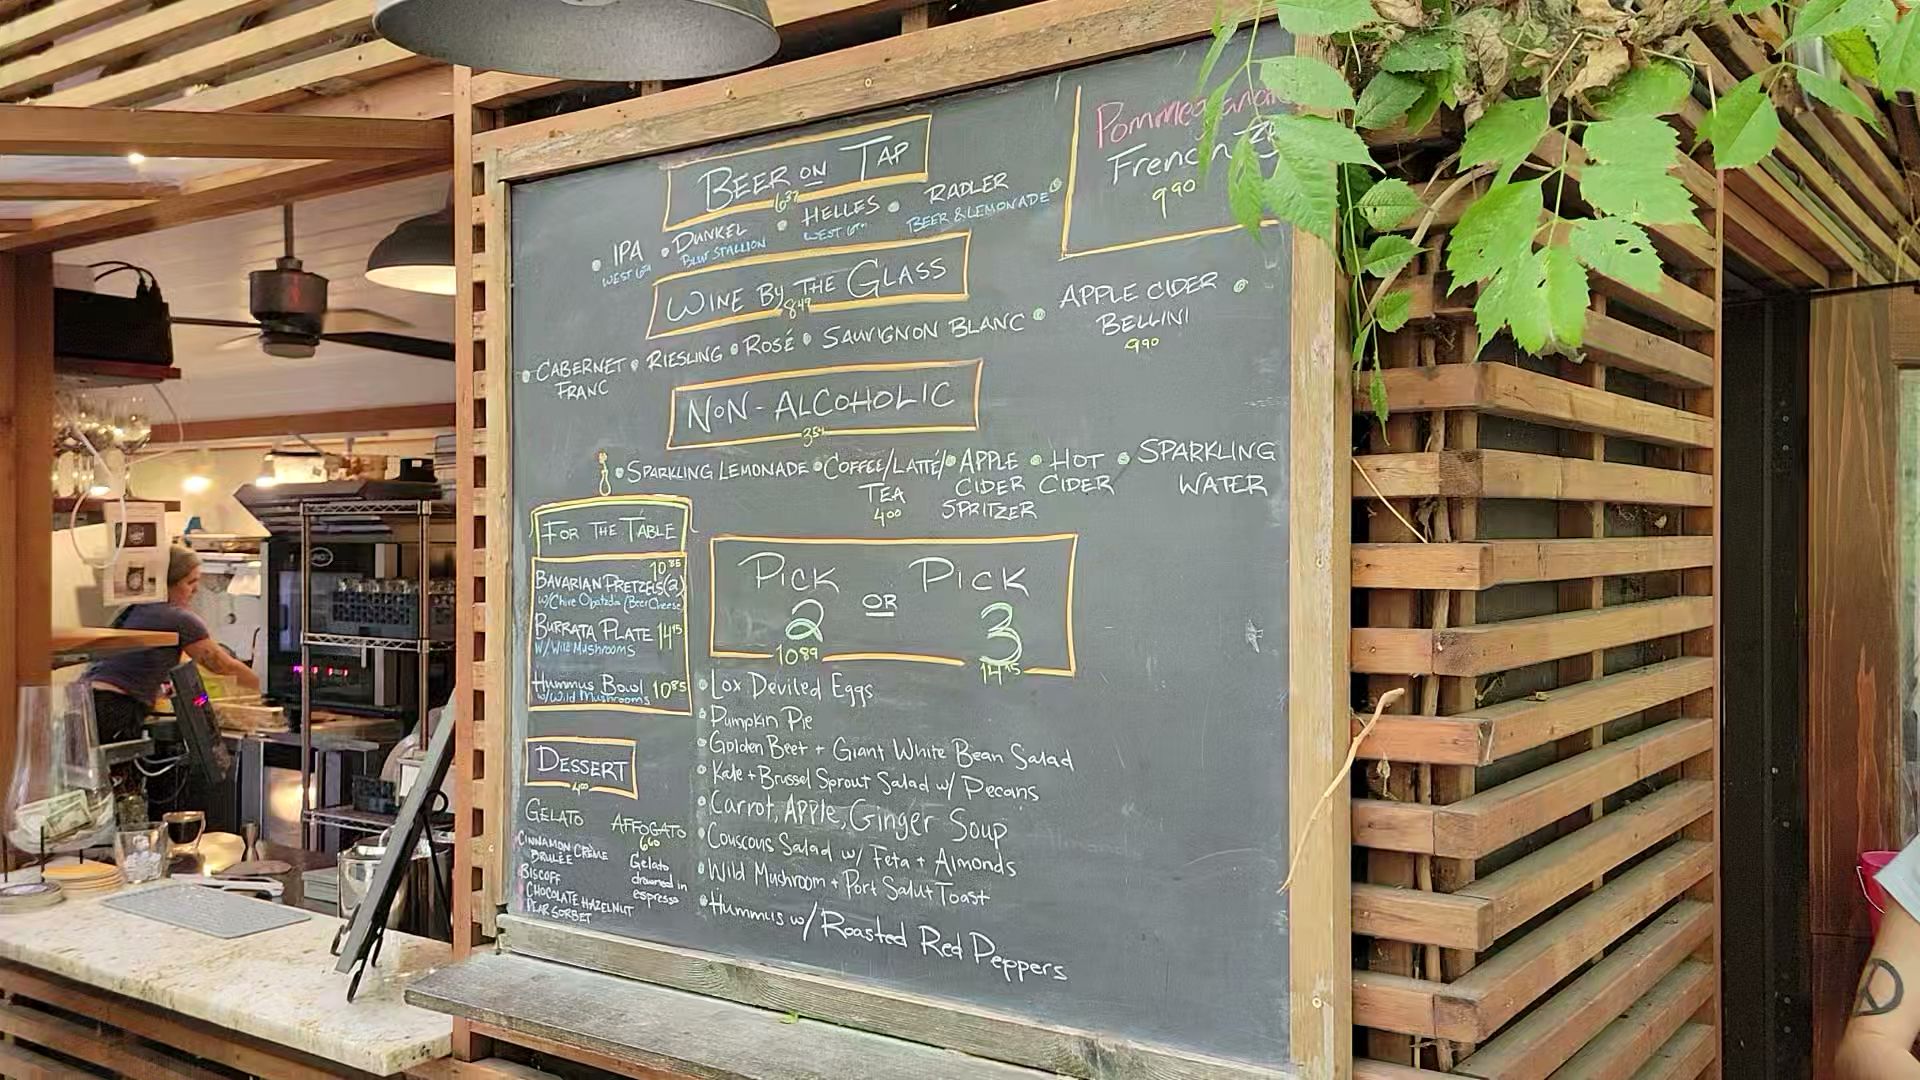 BEER ON TAP
6³⁷
IPA
WEST 6TH
DUNKEL
BLUE STALLION
HELLES
WEST 6TH
RADLER
BEER & LEMONADE
Pommegranate
French 75
9⁹⁰
WINE BY THE GLASS
8⁴⁹
CABERNET
FRANC
RIESLING
ROSÉ
SAUVIGNON BLANC
APPLE CIDER
BELLINI
9⁹⁰
NON-ALCOHOLIC
3⁵⁴
SPARKLING LEMONADE
COFFEE/LATTÉ/
TEA
4⁰⁰
APPLE
CIDER
SPRITZER
HOT
CIDER
SPARKLING
WATER
FOR THE TABLE
10⁸⁵
BAVARIAN PRETZELS(2)
w/Chive Obatzda (Beer Cheese)
BURRATA PLATE 14¹⁵
W/Wild MUSHROOMS
HUMMUS BOWL 10⁸⁵
w/Wild Mushrooms
PICK 2 OR PICK 3
10⁸⁹
14¹⁵
Lox Deviled Eggs
Pumpkin Pie
Golden Beet + Giant White Bean Salad
Kale + Brussel Sprout Salad w/ Pecans
Carrot, Apple, Ginger Soup
Couscous Salad w/ Feta + Almonds
Wild Mushroom + Port Salut Toast
Hummus w/ Roasted Red Peppers
DESSERT
4⁰⁰
GELATO
CINNAMON CRÈME
BRULÉE
BISCOFF
CHOCOLATE HAZELNUT
PEAR SORBET
AFFOGATO
6⁶⁰
Gelato
drowned in
espresso